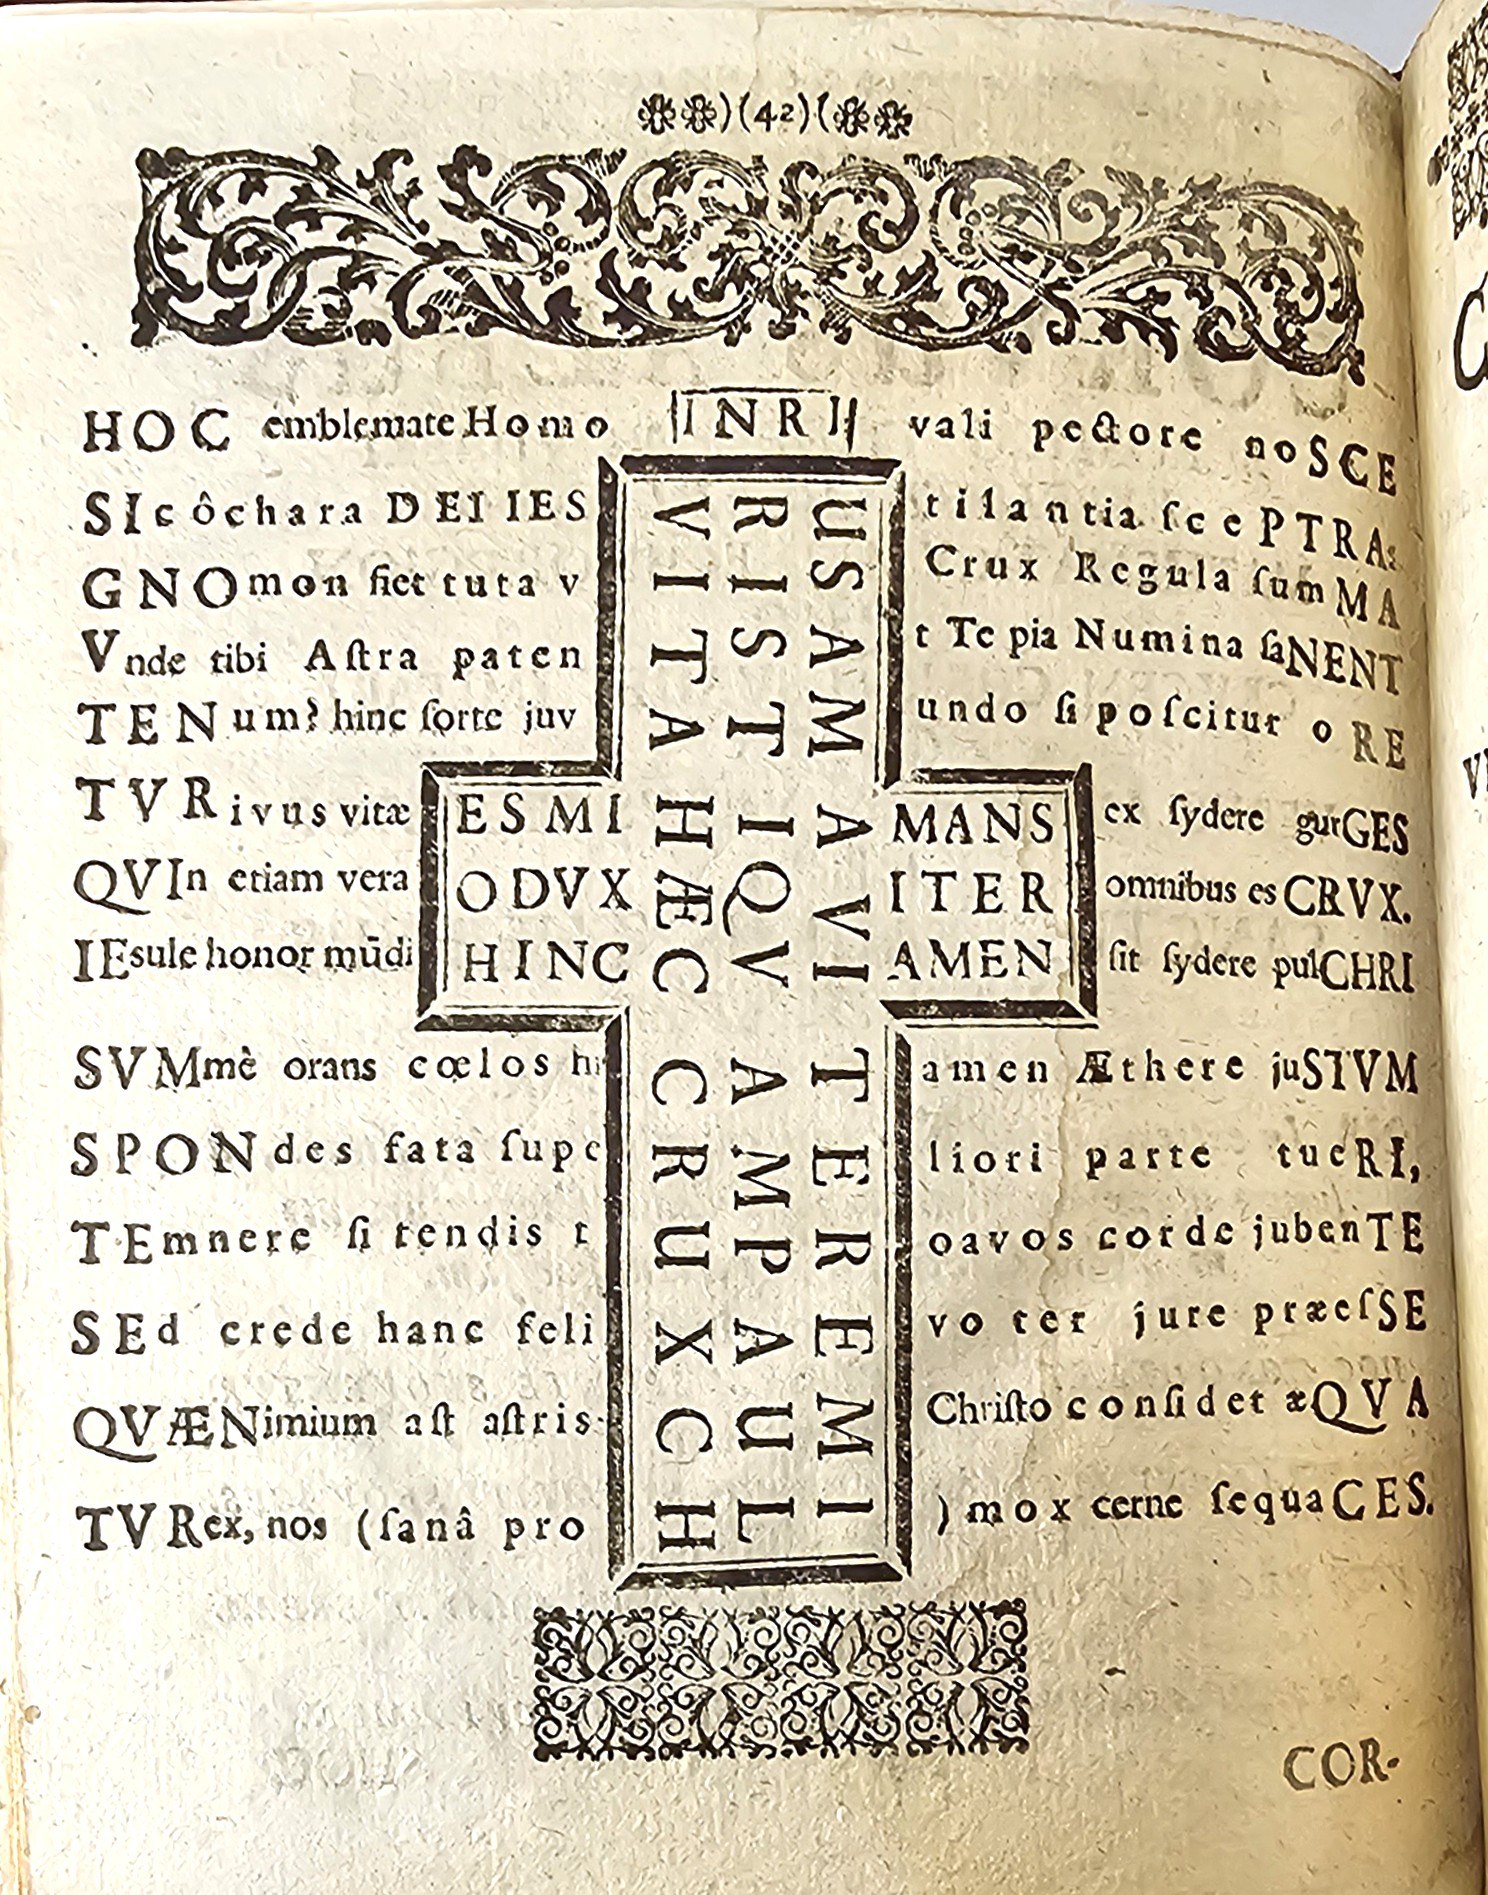 )(42)(
HOC emblemate Homo INRI vali pectore noSCE
SI côchara DEI IES V R U tilantia ſcePTRA:
GNOmon fiet tuta v I I S Crux Regula ſumMA
Vnde tibi Aſtra paten T S A t Te pia Numina ſaNENT
TENum? hinc ſorte juv A T M undo ſi poſcitur oRE
TVRivus vitæ ES MI H I A MANS ex ſydere gurGES
QVIn etiam vera O DVX Æ Q V ITER omnibus es CRVX.
IEsule honor mūdi HINC C V I AMEN ſit ſydere pulCHRI
SVMmè orans cœlos hi C A T amen Æthere juSTVM
SPONdes fata ſupe R M E liori parte tueRI,
TEmnere ſi tendis t U P R oavos corde jubenTE
SEd crede hanc feli X A E vo ter jure præeſSE
QVÆNimium aſt aſtris C U M Chriſto conſidet æQVA
TVRex, nos (ſanâ pro H L I ) mox cerne ſequaCES.
COR-